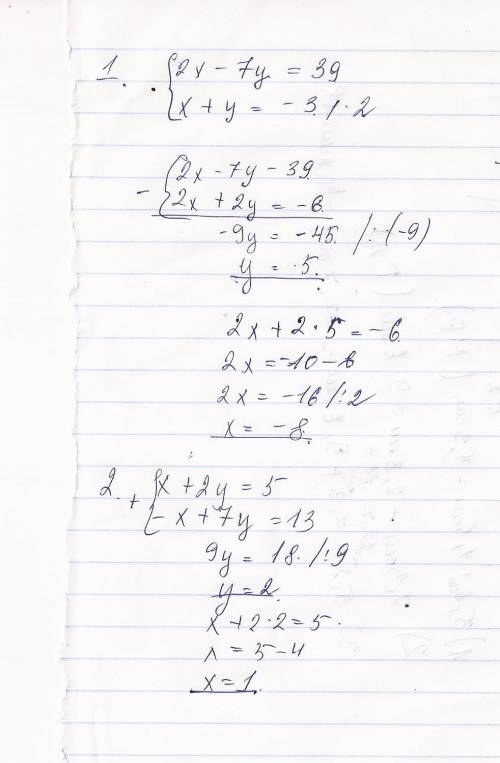 1. { 2x - 7y = 39
x + y = -3 / · 2
- { 2x - 7y - 39
2x + 2y = -6
-9y = -45 / : (-9)
y = 5
2x + 2 · 5 = -6
2x = -10 - 6
2x = -16 / : 2
x = -8
2. + { x + 2y = 5
- x + 7y = 13
9y = 18 / : 9
y = 2
x + 2 · 2 = 5
x = 5 - 4
x = 1